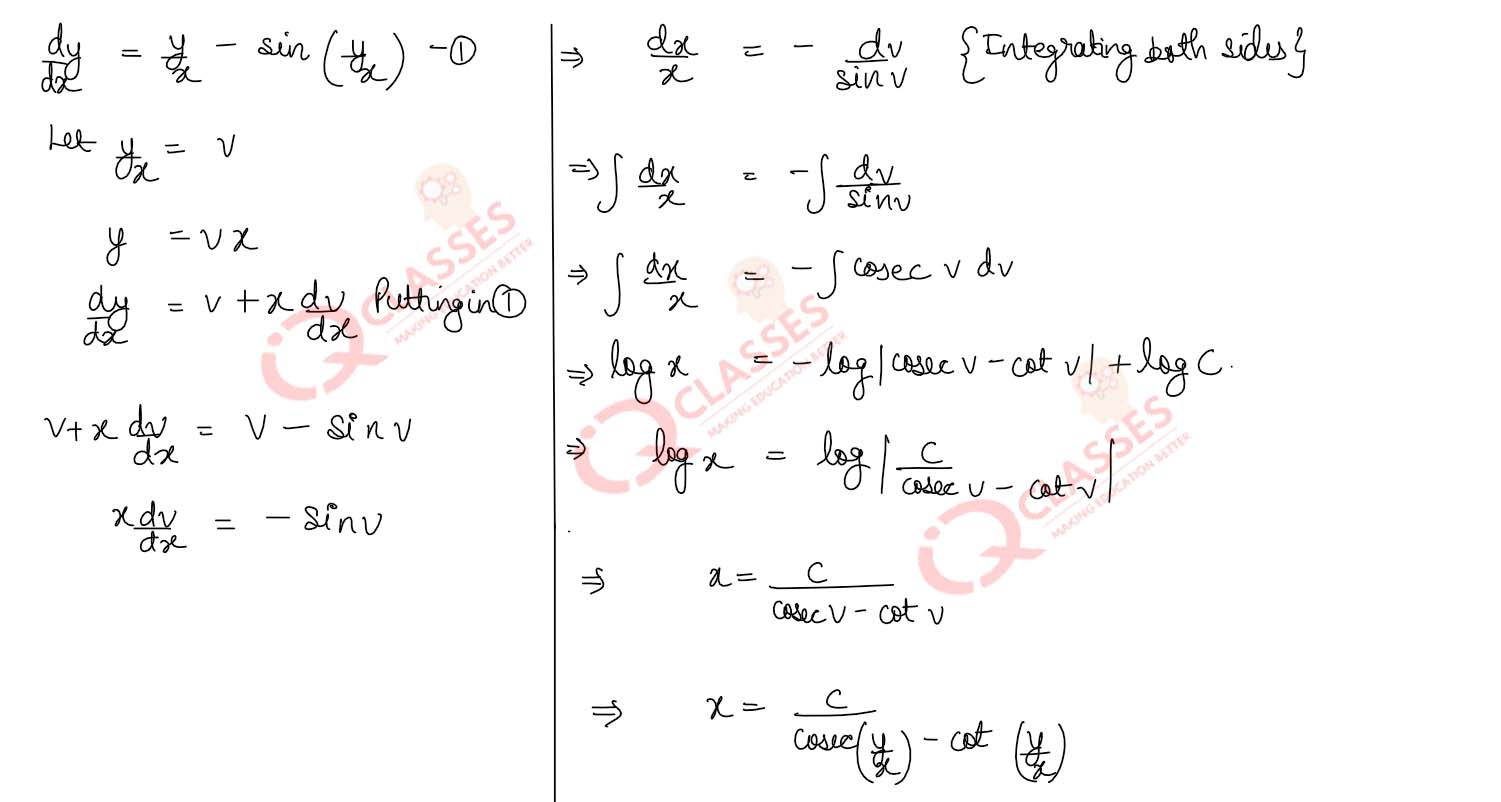 dy/dx = y/x - sin (y/x) -①
Let y/x = v
y = vx
dy/dx = v + x dv/dx Putting in ①
v+x dv/dx = v - sin v
x dv/dx = - sin v
⇒ dx/x = - dv/sin v {Integrating both sides}
⇒ ∫ dx/x = - ∫ dv/sin v
⇒ ∫ dx/x = - ∫ cosec v dv
⇒ log x = - log |cosec v - cot v| + log C.
⇒ log x = log | C/cosec v - cot v |
⇒ x = C/cosec v - cot v
⇒ x = C/cosec (y/x) - cot (y/x)
iQ CLASSES
MAKING EDUCATION BETTER
iQ CLASSES
MAKING EDUCATION BETTER
iQ CLASSES
MAKING EDUCATION BETTER